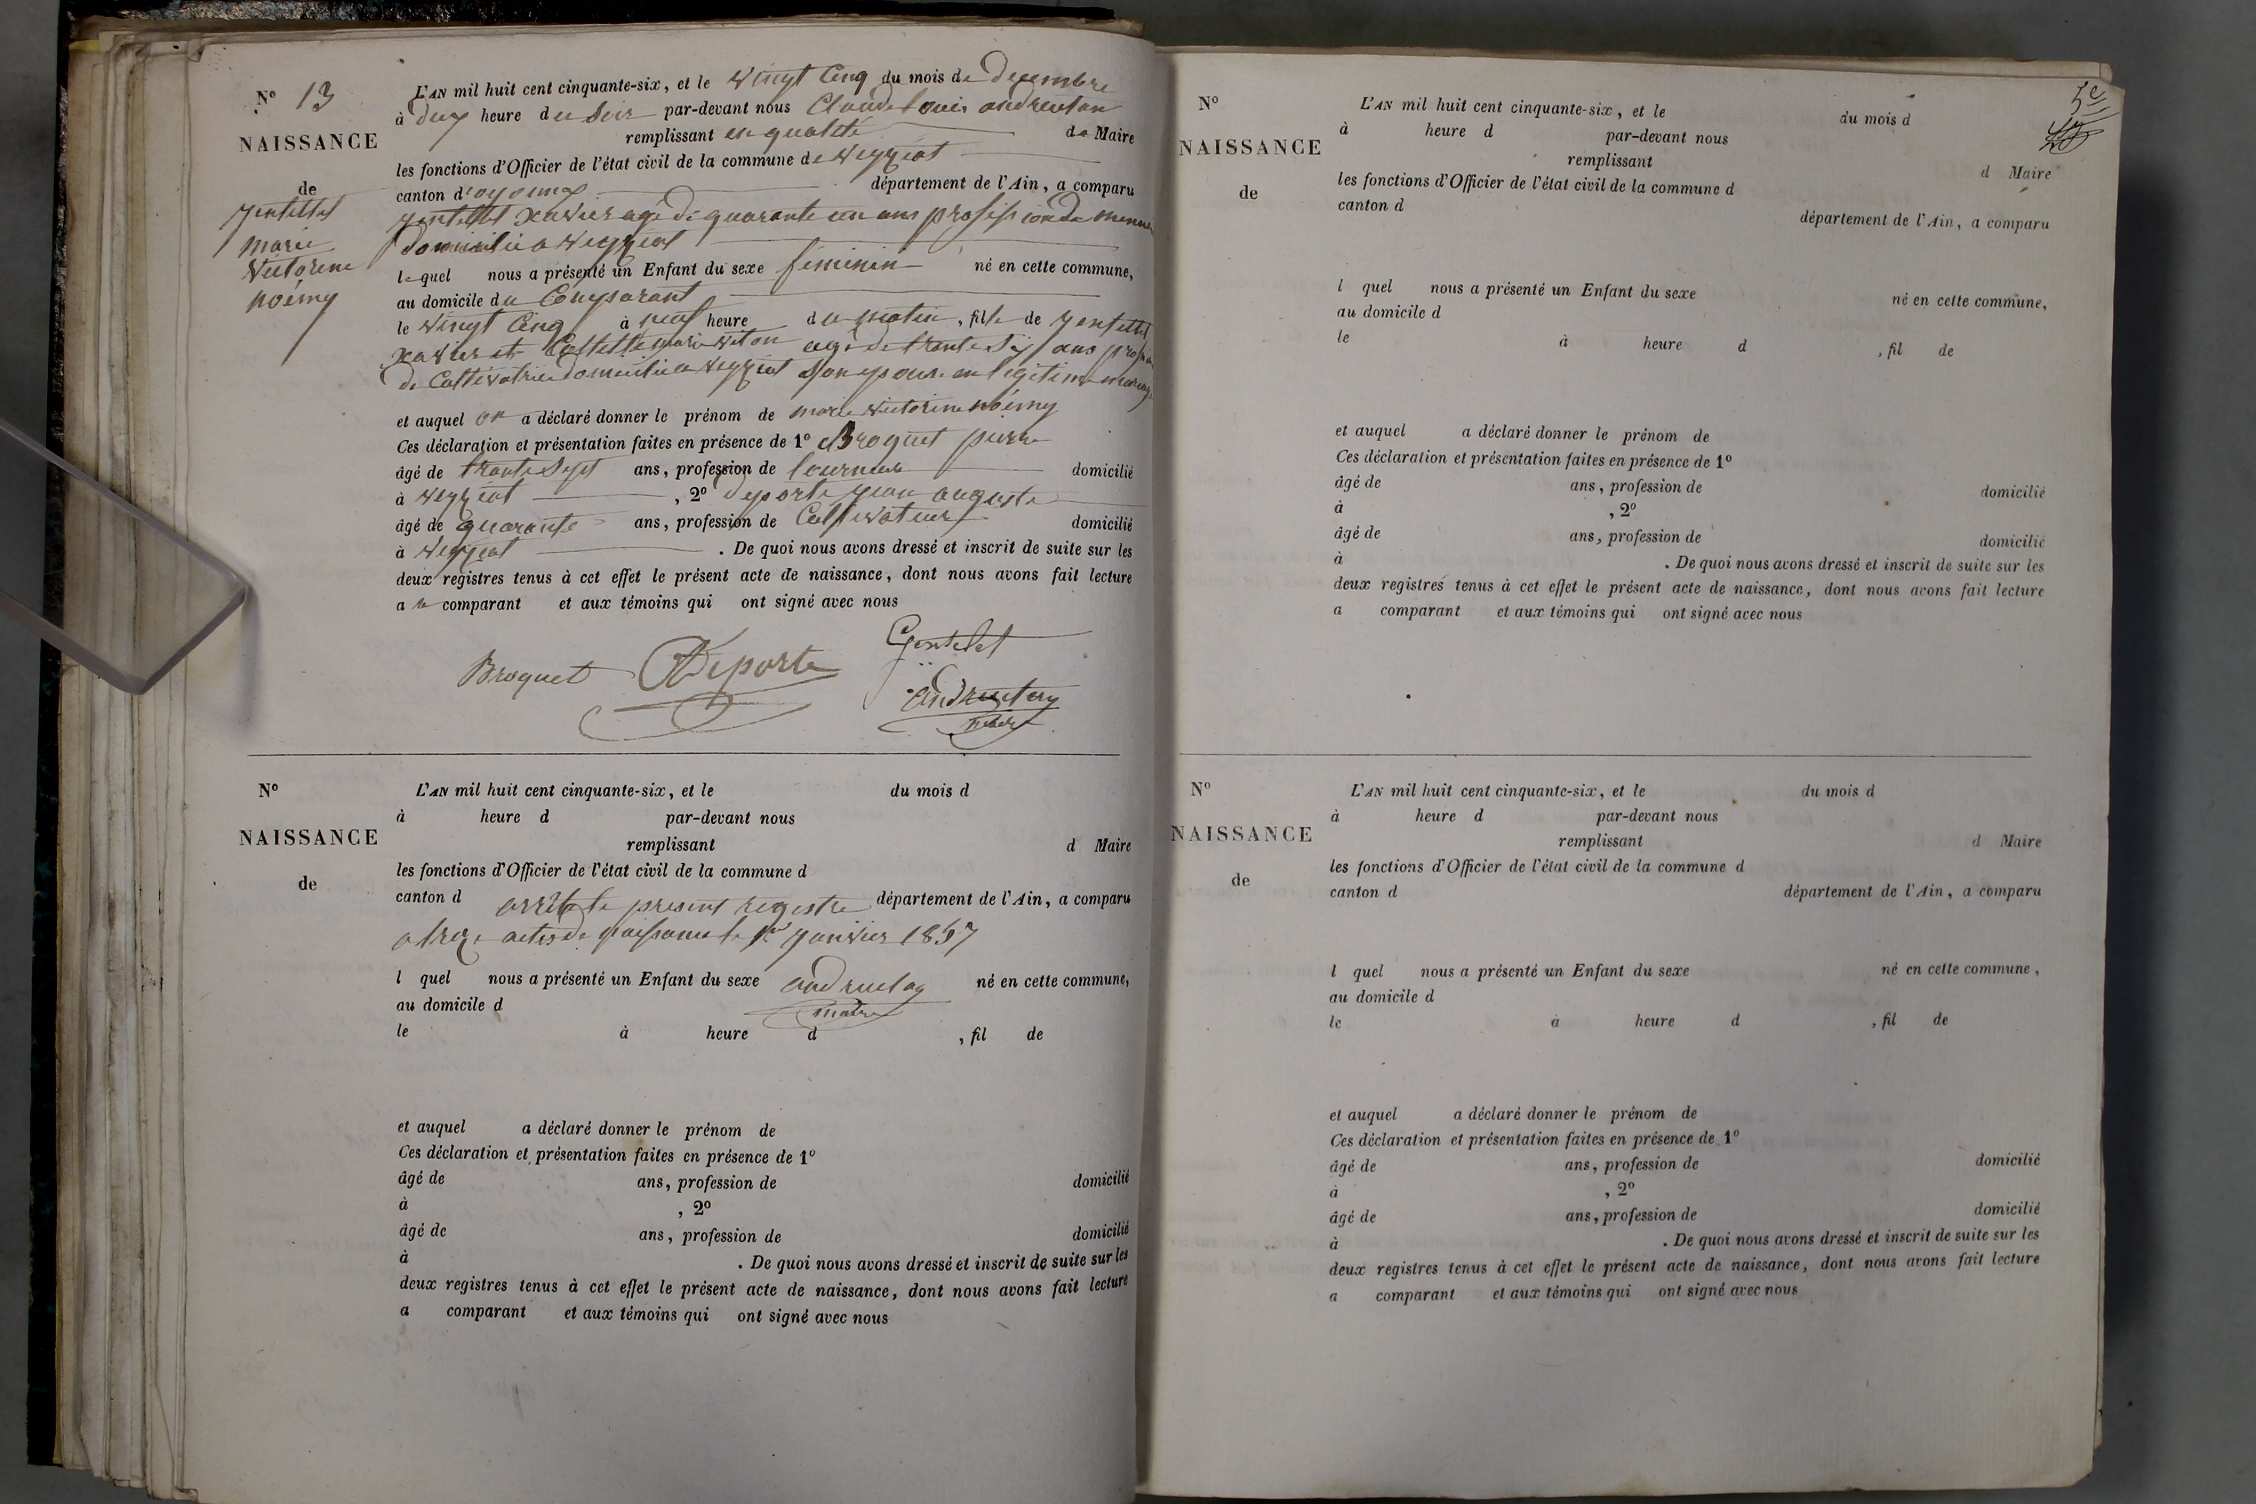 No 13
NAISSANCE
de
gentellet
marie
victorine
noémy
L'AN mil huit cent cinquante-six, et le vingt cinq du mois de decembre
à deux heure du soir par-devant nous Claude Louis andruetan
remplissant en qualité de Maire
les fonctions d'Officier de l'état civil de la commune de veyziat
canton d'oyonnax département de l'Ain, a comparu
gentellet xavier agé de quarante un ans profession de
domicilié a veyziat
lequel nous a présenté un Enfant du sexe féminin né en cette commune,
au domicile du Comparant
le vingt Cinq à neuf heure du matin, fille de gentellet
xavier et Collette marie agé de trente six ans
de Cultivatrice domicilié a veyziat son epouse en légitime mariage
et auquel on a déclaré donner le prénom de marie victorine noémy
Ces déclaration et présentation faites en présence de 1º Broquet pierre
âgé de trente sept ans, profession de tourneur domicilié
à veyziat, 2º deporte jean auguste
âgé de quarante ans, profession de Cultivateur domicilié
à veyziat. De quoi nous avons dressé et inscrit de suite sur les
deux registres tenus à cet effet le présent acte de naissance, dont nous avons fait lecture
a u comparant et aux témoins qui ont signé avec nous
Broquet Deporte Gentelet
andruetan
maire
No
NAISSANCE
de
L'AN mil huit cent cinquante-six, et le du mois d
à heure d par-devant nous
remplissant d Maire
les fonctions d'Officier de l'état civil de la commune d
canton d département de l'Ain, a comparu
arrêté le présent registre
a treize actes de naissance le 1er janvier 1857
l quel nous a présenté un Enfant du sexe né en cette commune,
andruetan
maire
au domicile d
le à heure d , fil de
et auquel a déclaré donner le prénom de
Ces déclaration et présentation faites en présence de 1º
âgé de ans, profession de domicilié
à , 2º
âgé de ans, profession de domicilié
à . De quoi nous avons dressé et inscrit de suite sur les
deux registres tenus à cet effet le présent acte de naissance, dont nous avons fait lecture
a comparant et aux témoins qui ont signé avec nous
No
NAISSANCE
de
L'AN mil huit cent cinquante-six, et le du mois d
à heure d par-devant nous
remplissant d Maire
les fonctions d'Officier de l'état civil de la commune d
canton d département de l'Ain, a comparu
l quel nous a présenté un Enfant du sexe né en cette commune,
au domicile d
le à heure d , fil de
et auquel a déclaré donner le prénom de
Ces déclaration et présentation faites en présence de 1º
âgé de ans, profession de domicilié
à , 2º
âgé de ans, profession de domicilié
à . De quoi nous avons dressé et inscrit de suite sur les
deux registres tenus à cet effet le présent acte de naissance, dont nous avons fait lecture
a comparant et aux témoins qui ont signé avec nous
No
NAISSANCE
de
L'AN mil huit cent cinquante-six, et le du mois d
à heure d par-devant nous
remplissant d Maire
les fonctions d'Officier de l'état civil de la commune d
canton d département de l'Ain, a comparu
l quel nous a présenté un Enfant du sexe né en cette commune,
au domicile d
le à heure d , fil de
et auquel a déclaré donner le prénom de
Ces déclaration et présentation faites en présence de 1º
âgé de ans, profession de domicilié
à , 2º
âgé de ans, profession de domicilié
à . De quoi nous avons dressé et inscrit de suite sur les
deux registres tenus à cet effet le présent acte de naissance, dont nous avons fait lecture
a comparant et aux témoins qui ont signé avec nous